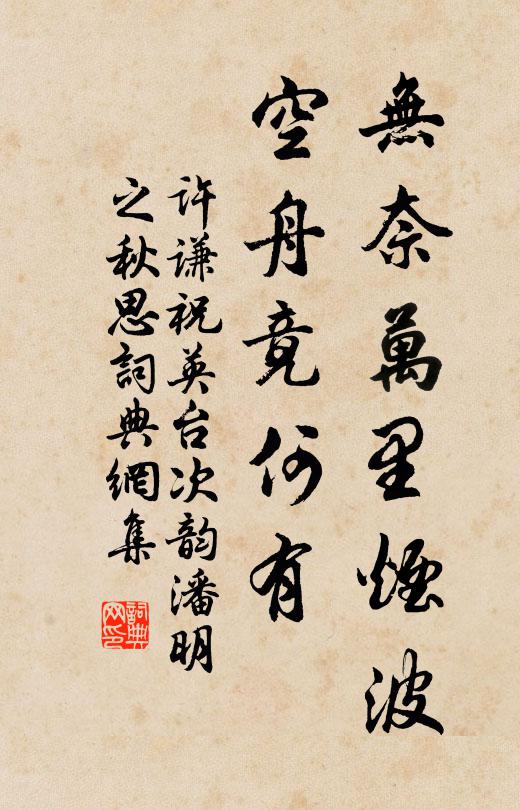 無奈萬里煙波
空舟竟何有
許謙祝英台次韵潘明
之秋思詞典網集
詞典網印